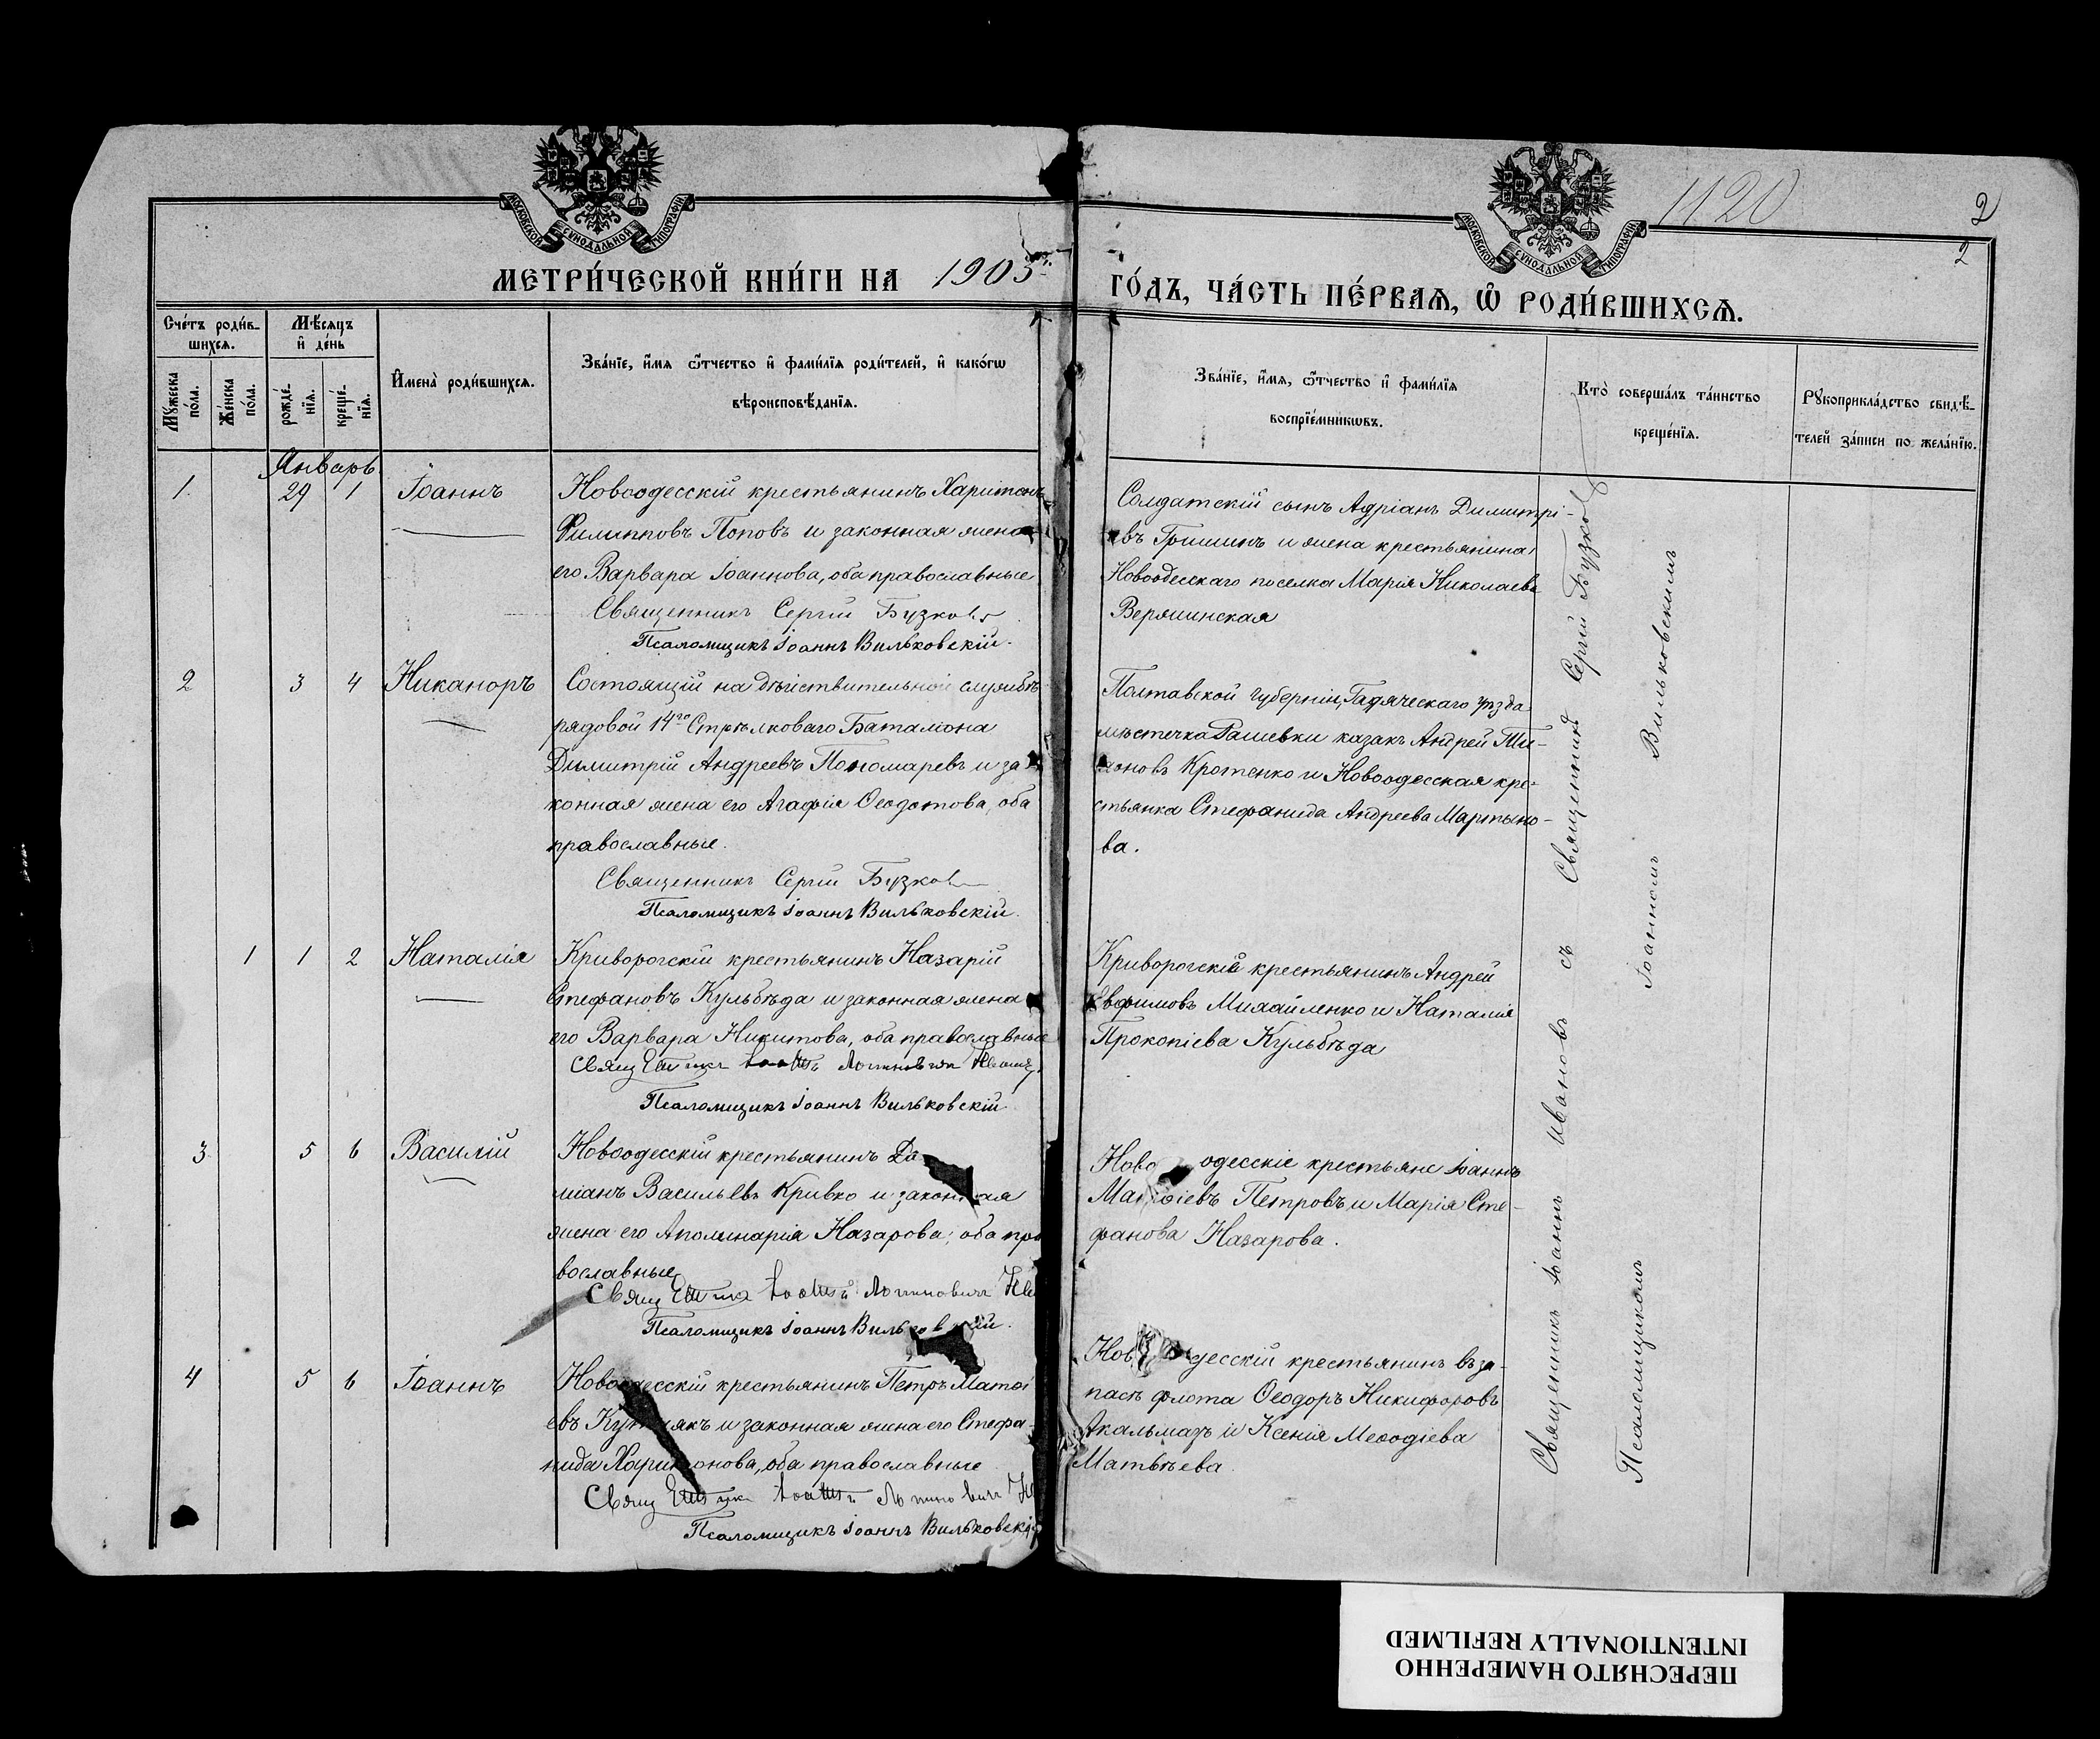 МОСКОВСКОЙ СУНОДАЛЬНОЙ ТИПОГРАФІИ
МОСКОВСКОЙ СУНОДАЛЬНОЙ ТИПОГРАФІИ
1120
2
2
МЕТРИ́ЧЕСКОЙ КНИ́ГИ НА 1905
ГО́ДЪ, ЧА́СТЬ ПЕ́РВАѦ, Ѡ РОДИ́ВШИХСѦ.
Сче́тъ роди́в-
шихсѧ.
Мѣ́сяцъ
и҆ де́нь
Му́жеска
по́ла.
Же́нска
по́ла.
рожде́-
нїѧ.
креще́-
нїѧ.
И҆мена̀ роди́вшихсѧ.
Зва́нїе, и҆́мѧ ѻ҆́тчество и҆ фами́лїѧ роди́телей, и҆ како́гѡ
вѣроисповѣ́данїѧ.
Зва́нїе, и҆́мѧ, ѻ҆́тчество и҆ фами́лїѧ
воспрїе́мникѡвъ.
Кто̀ соверша́лъ та́инство
креще́нїѧ.
Рукоприкла́дство свидѣ́-
телей за́писи по жела́нїю.
Январь
1. 29 1 Іоаннъ
Новоодесскій крестьянинъ Харитонъ
Филипповъ Поповъ и законная жена
его Варвара Іоаннова, оба православные
Священникъ Сергій Бузковъ
Псаломщикъ Іоаннъ Вильковскій.
Солдатскій сынъ Адріанъ Димитрі-
евъ Гришинъ и жена крестьянина
Новоодесскаго поселка Марія Николаева
Верянинская
2 3 4 Никаноръ
Состоящій на дѣйствительной службѣ
рядовой 14го Стрѣлковаго Баталіона
Димитрій Андреевъ Пономаревъ и за
конная жена его Агафія Ѳеодотова, оба
православные.
Священникъ Сергій Бузковъ
Псаломщикъ Іоаннъ Вильковскій.
Полтавской губерніи, Гадяческаго уѣзда
мѣстечка Рашевки казакъ Андрей Ти-
моновъ Кротенко и Новоодесская кре-
стьянка Стефанида Андреева Мартыно-
ва.
1 1 2 Наталія
Криворогскій крестьянинъ Назарій
Стефановъ Кульбѣда и законная жена
его Варвара Никитова, оба православные
Священникъ Іоаннъ Логиновичъ
Псаломщикъ Іоаннъ Вильковскій
Криворогскій крестьянинъ Андрей
Евфимовъ Михайленко и Наталія
Прокопіева Кульбѣда
3 5 6 Василій
Новоодесскій крестьянинъ Да
міанъ Васильевъ Кривко и законная
жена его Аполинарія Назарова, оба пра
вославные
Священникъ Іоаннъ Логиновичъ
Псаломщикъ Іоаннъ Вильковскій.
Новоодесскіе крестьяне Іоаннъ
Матѳіевъ Петровъ и Марія Сте-
фанова Назарова.
4 5 6 Іоаннъ
Новоодесскій крестьянинъ Петръ Матѳі
евъ и законная жена его Стефа-
нида Харитонова, оба православные
Священникъ Іоаннъ Логиновичъ
Псаломщикъ Іоаннъ Вильковскій
Новоодесскій крестьянинъ въ за-
пасѣ флота Ѳеодоръ Никифоровъ
Акальмазъ и Ксенія Меѳодіева
Матвѣева.
Священникъ Іоаннъ Ивановъ съ Священникъ Сергій Бузковъ
Псаломщикомъ Іоанномъ Вильковскимъ
ПЕРЕСНЯТО НАМЕРЕННО
INTENTIONALLY REFILMED